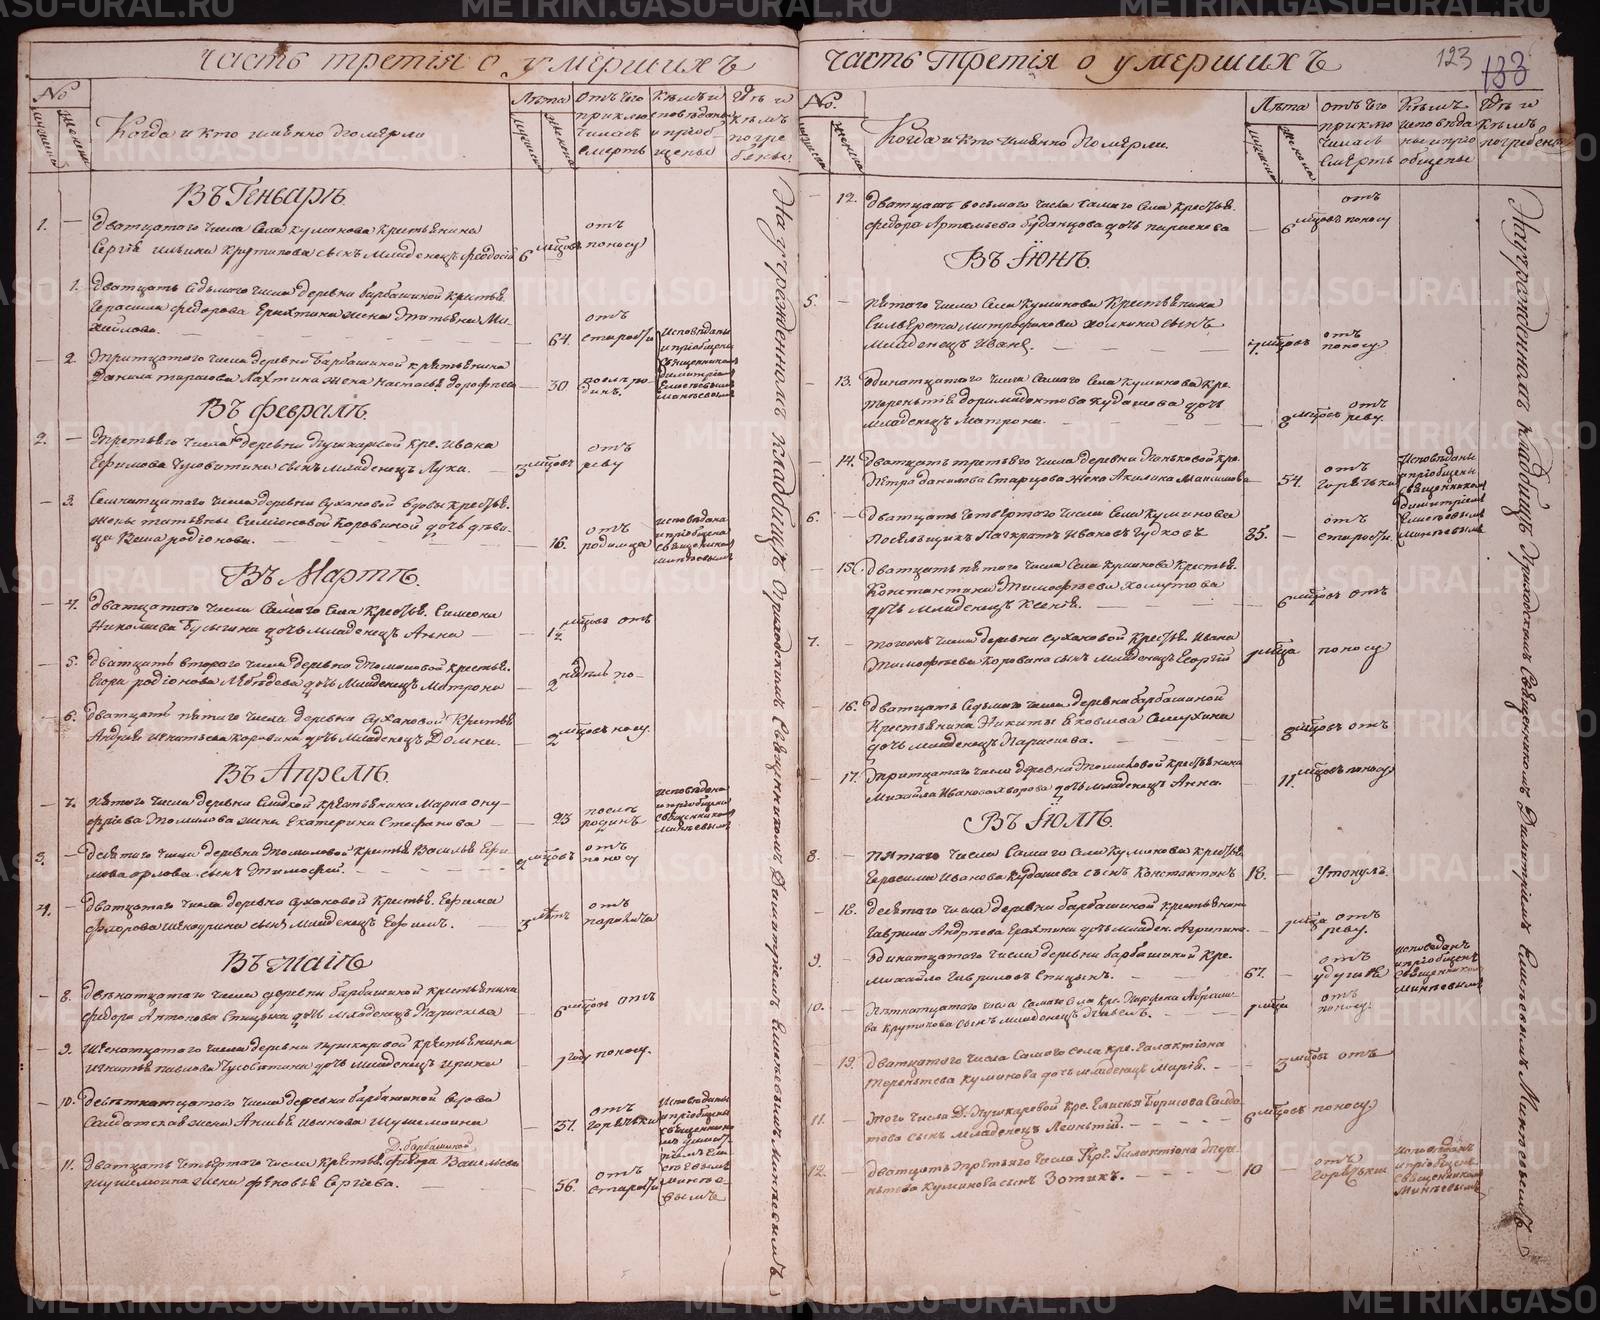 часть третія о умершихъ
№
мужеска
женска
Когда и кто именно померли
Лѣта
мужска
женска
отъ чего приклю чилась смерть
Кѣмъ исповѣданы и пріоб щены
Гдѣ и кѣмъ погре бены
Въ Генварѣ.
1. — дватцатого числа села куминова крестьянина
Сергія ильина Крутикова сынъ младенецъ Феодосій 6 мѣсцовъ отъ поносу
1. дватцать седьмого числа деревни барбашиной крестья.
Герасима федорова Ерихтина жена Татьяна Ми-
хайлова. — 64. отъ старости
исповѣданы и пріобщены священникомъ димитріемъ Елисѣевымъ минѣевымъ
2. тритцатого числа деревни Барбашиной крестьянина
Данила Лахтина жена настасья дорофеева — 30 послѣ родинъ.
Въ февралѣ.
2. — третьяго числа деревни пушкаревой кре. ивана
Ефимова сынъ младенецъ Лука. — 3 мѣсцовъ отъ реву
— 3. Семнатцатого числа деревни сухановой вдовы крестья.
жены татьяны Симеоновой Коровиной дочь дѣви-
ца родіонова. — 16. отъ родимца
исповѣдана и пріобщена священникомъ минѣевымъ
Въ Мартѣ.
— 4. дватцатого числа Самого села крестья. Симеона
Николаева Бусыгина дочь младенецъ Анна — 12 мѣсцовъ отъ
— 5. дватцать втораго числа деревни крестья.
Егора родіонова дочь младенецъ матрона — 2 недѣль по-
— 6. дватцать пятаго числа деревни Сухановой крестья
Андрея игнатьева коровина дочь младенецъ Домна. — 2 мѣсцовъ носу.
Въ Апрелѣ.
— 7. пятого числа деревни крестьянина Марка ону-
фріева Томилова жена Екатерина Стефанова — 23 послѣ родинъ
исповѣдана и пріобщена священникомъ минѣевымъ
3. — десятого числа деревни Томиловой крестья Василья Ефи-
мова орлова сынъ Тимофей. — 2 мѣсцовъ отъ поносу
4. — дватцатого числа деревни сухановой крестья. Ефима
федорова сынъ младенецъ Ефимъ. 3 лѣтъ отъ паралича
Въ маіѣ
— 8. двенатцатого числа деревни барбашиной крестьянина
федора Антонова Спицына дочь младенецъ Параскева — 6 мѣсцовъ отъ
— 9. шеснатцатого числа деревни пушкаревой крестьянина
игнатья павлова дочь младенецъ ирина — 1 году поносу.
— 10. девятнатцатого числа деревни барбашиной вдова
Салдатская жена Анисья иванова Шушмонина — 37. отъ горячьки
исповѣданы и пріобщены священникомъ димитріемъ Елисѣевымъ минѣевымъ
Д. барбашиной
— 11. дватцать четвертого числа крестья. федора Васильева
шушмонина жена феновья Сергіева. — 56. отъ старости
На учрежденномъ кладбищѣ Приходскимъ Священникомъ Димитріемъ Елисѣевымъ Минѣевымъ
часть третія о умершихъ
123
133
№.
мужска
женска
Когда и кто именно померли.
Лѣта
мужска
женска
отъ чего приклю чилась смерть
Кѣмъ исповѣда ны и пріо общены
Гдѣ и кѣмъ погребены
— 12. дватцать восьмого числа самого села крестья.
федора Артемьева буданцова дочь параскева — 6 мѣсцовъ отъ поносу
Въ Іюнѣ.
5. — пятого числа села куминова крестьянина
Сильвестра митрофанова холкина сынъ
младенецъ Иванъ. — 7. мѣсцовъ отъ поносу
— 13. одинатцатого числа Самого села куминова кре.
терентья доримедонтова кудашева дочь
младенецъ Матрона. — 8 мѣсцовъ отъ реву.
— 14. дватцать третьяго числа деревни паньковой кре.
Петра данилова Старцова жена Акилина Максимова — 54. отъ горячьки
исповѣданы и пріобщены священникомъ димитріемъ Елисѣевымъ минѣевымъ
6. — дватцать четвертого числа села куминова
посельщикъ панкратъ ивановъ чудковъ 85. — отъ старости.
— 15. дватцать пятого числа села куминова крестья.
Константина Тимофѣева хомутова
дочь младенецъ ксенія. — 6 мѣсцовъ отъ
7. — тогожъ числа деревни сухановой крестья. ивана
Тимофѣева корована сынъ младенецъ Георгій 1 мѣсца поносу
— 16. дватцать седьмого числа деревни барбашиной
крестьянина Никиты Яковлева Самухина
дочь младенецъ Параскева. — 8 мѣсцовъ отъ
— 17. тритцатого числа деревни Томиловой крестьянина
Михайла Иванова хворова дочь младенецъ Анна. — 11. мѣсцовъ поносу
Въ Іюлѣ.
8. — пятаго числа Самаго села куминова крестья
Герасима иванова кудашева сынъ константинъ 18. — утонулъ.
— 18. десятого числа деревни барбашиной крестьянина
гаврила Андреева Ерахтина дочь младен. Агрипина. — 1 мѣсца отъ реву.
9. — одинатцатого числа деревни барбашиной кре.
михайло гавриловъ Спицынъ. — 67. — отъ удушья
исповѣданъ и пріобщенъ священникомъ минѣевымъ
10. — пятнатцатого числа самого села кре. Парфена Абраши-
ва крутикова сынъ младенецъ Павелъ. — 1 мѣсца отъ поносу.
— 19. дватцатого числа самого села кре. Галактіона
терентьева куминова дочь младенецъ Марія. — 3 мѣсцовъ отъ
11. — Того числа Д. Пушкаревой кре. Елисея Борисова Салда-
това сынъ младенецъ Леонтій. — 6 мѣсцовъ поносу
12. — дватцать третьяго числа кре. Галактіона Тере-
нтьева куминова сынъ Зотикъ. — 10 — отъ горячьки
исповѣданъ и пріобщенъ священникомъ минѣевымъ
На учрежденномъ кладбищѣ Приходскимъ Священникомъ Димитріемъ Елисѣевымъ Минѣевымъ
METRIKI.GASO-URAL.RU